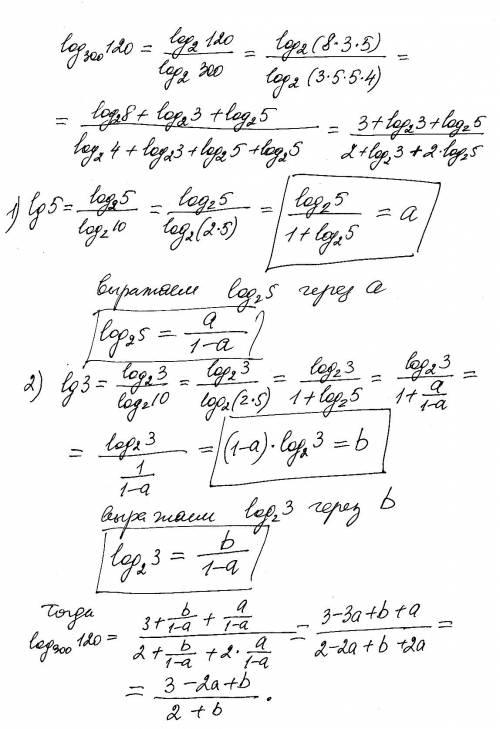 log₃₀₀120 = log₂120 / log₂300 = log₂(8·3·5) / log₂(3·5·5·4) =
= (log₂8 + log₂3 + log₂5) / (log₂4 + log₂3 + log₂5 + log₂5) = (3 + log₂3 + log₂5) / (2 + log₂3 + 2·log₂5)
1) lg5 = log₂5 / log₂10 = log₂5 / log₂(2·5) = log₂5 / (1 + log₂5) = a
выражаем log₂5 через a
log₂5 = a / (1-a)
2) lg3 = log₂3 / log₂10 = log₂3 / log₂(2·5) = log₂3 / (1 + log₂5) = log₂3 / (1 + a/(1-a)) =
= log₂3 / (1/(1-a)) = (1-a)·log₂3 = b
выражаем log₂3 через b
log₂3 = b / (1-a)
Тогда
log₃₀₀120 = (3 + b/(1-a) + a/(1-a)) / (2 + b/(1-a) + 2·a/(1-a)) = (3-3a+b+a) / (2-2a+b+2a) =
= (3-2a+b) / (2+b).